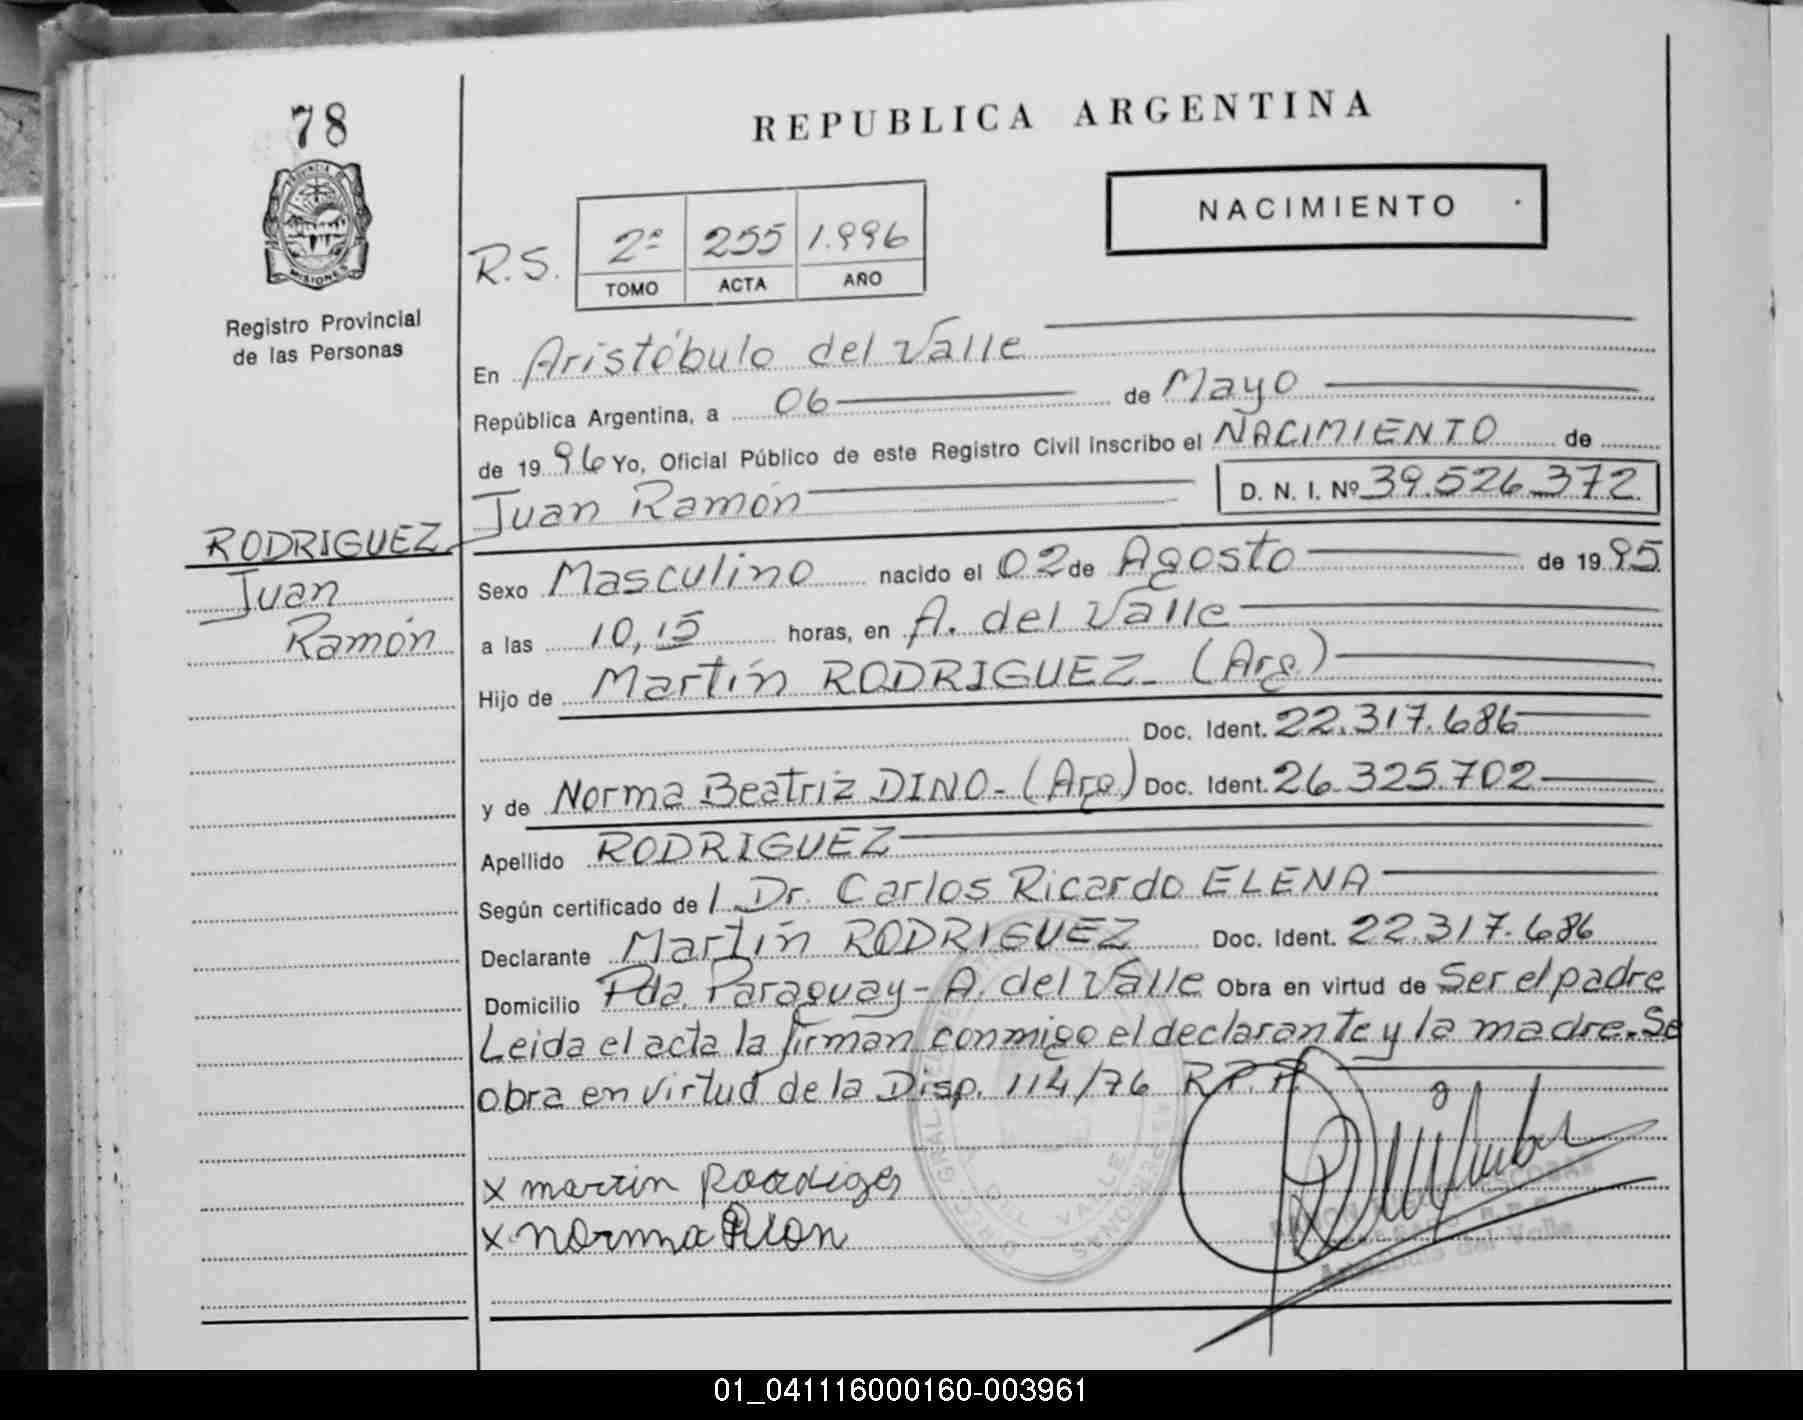 78
REPUBLICA ARGENTINA
NACIMIENTO
PROVINCIA DE
MISIONES
Registro Provincial
de las Personas
R.S. 2º 255 1.996
TOMO ACTA AÑO
En Aristóbulo del Valle
República Argentina, a 06 de Mayo
de 1996 Yo, Oficial Público de este Registro Civil inscribo el NACIMIENTO de
Juan Ramón D. N. I. Nº 39.526.372
RODRIGUEZ
Juan
Ramón
Sexo Masculino nacido el 02 de Agosto de 1995
a las 10,15 horas, en A. del Valle
Hijo de Martín RODRIGUEZ- (Arg)
Doc. Ident. 22.317.686
y de Norma Beatriz DINO- (Arg) Doc. Ident. 26.325.702
Apellido RODRIGUEZ
Según certificado de l Dr. Carlos Ricardo ELENA
Declarante Martín RODRIGUEZ Doc. Ident. 22.317.686
Domicilio Pda. Paraguay- A. del Valle Obra en virtud de Ser el padre
Leida el acta la firman conmigo el declarante y la madre. Se
obra en virtud de la Disp. 114/76 R.P.P.
x martin
x norma
DEL VALLE
Aristobulo del Valle
01_041116000160-003961